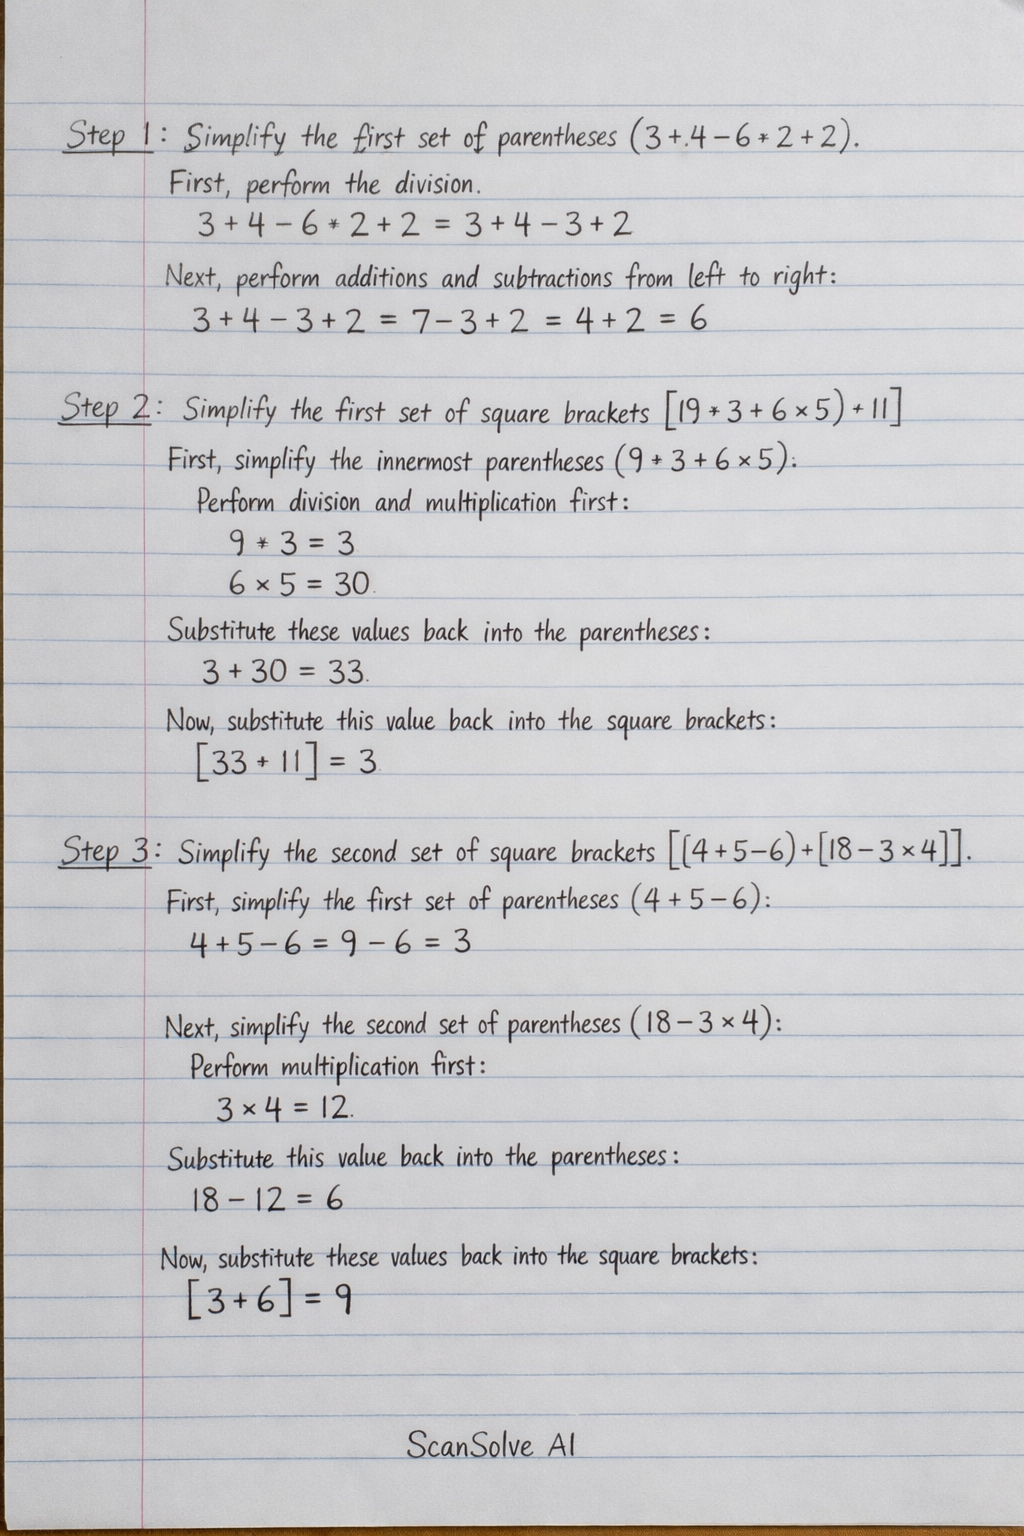 Step 1: Simplify the first set of parentheses (3+.4-6*2+2).
First, perform the division.
3+4-6*2+2 = 3+4-3+2
Next, perform additions and subtractions from left to right:
3+4-3+2 = 7-3+2 = 4+2 = 6
Step 2: Simplify the first set of square brackets [19*3+6×5)+11]
First, simplify the innermost parentheses (9+3+6×5):
Perform division and multiplication first:
9 * 3 = 3
6 × 5 = 30.
Substitute these values back into the parentheses:
3 + 30 = 33.
Now, substitute this value back into the square brackets:
[33 + 11] = 3.
Step 3: Simplify the second set of square brackets [[(4+5-6)+[18-3×4]].
First, simplify the first set of parentheses (4+5-6):
4+5-6 = 9-6 = 3
Next, simplify the second set of parentheses (18-3×4):
Perform multiplication first:
3 × 4 = 12.
Substitute this value back into the parentheses:
18 - 12 = 6
Now, substitute these values back into the square brackets:
[3+6] = 9
ScanSolve AI